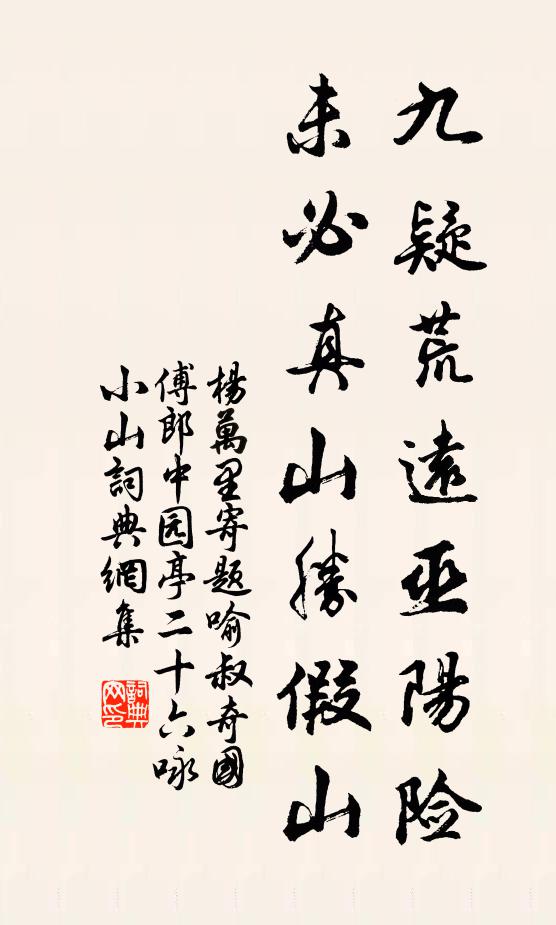 九疑荒遠巫陽险
未必真山勝假山
楊萬里寄题喻叔奇國
傅郎中园亭二十六咏
小山詞典網集
詞典网印